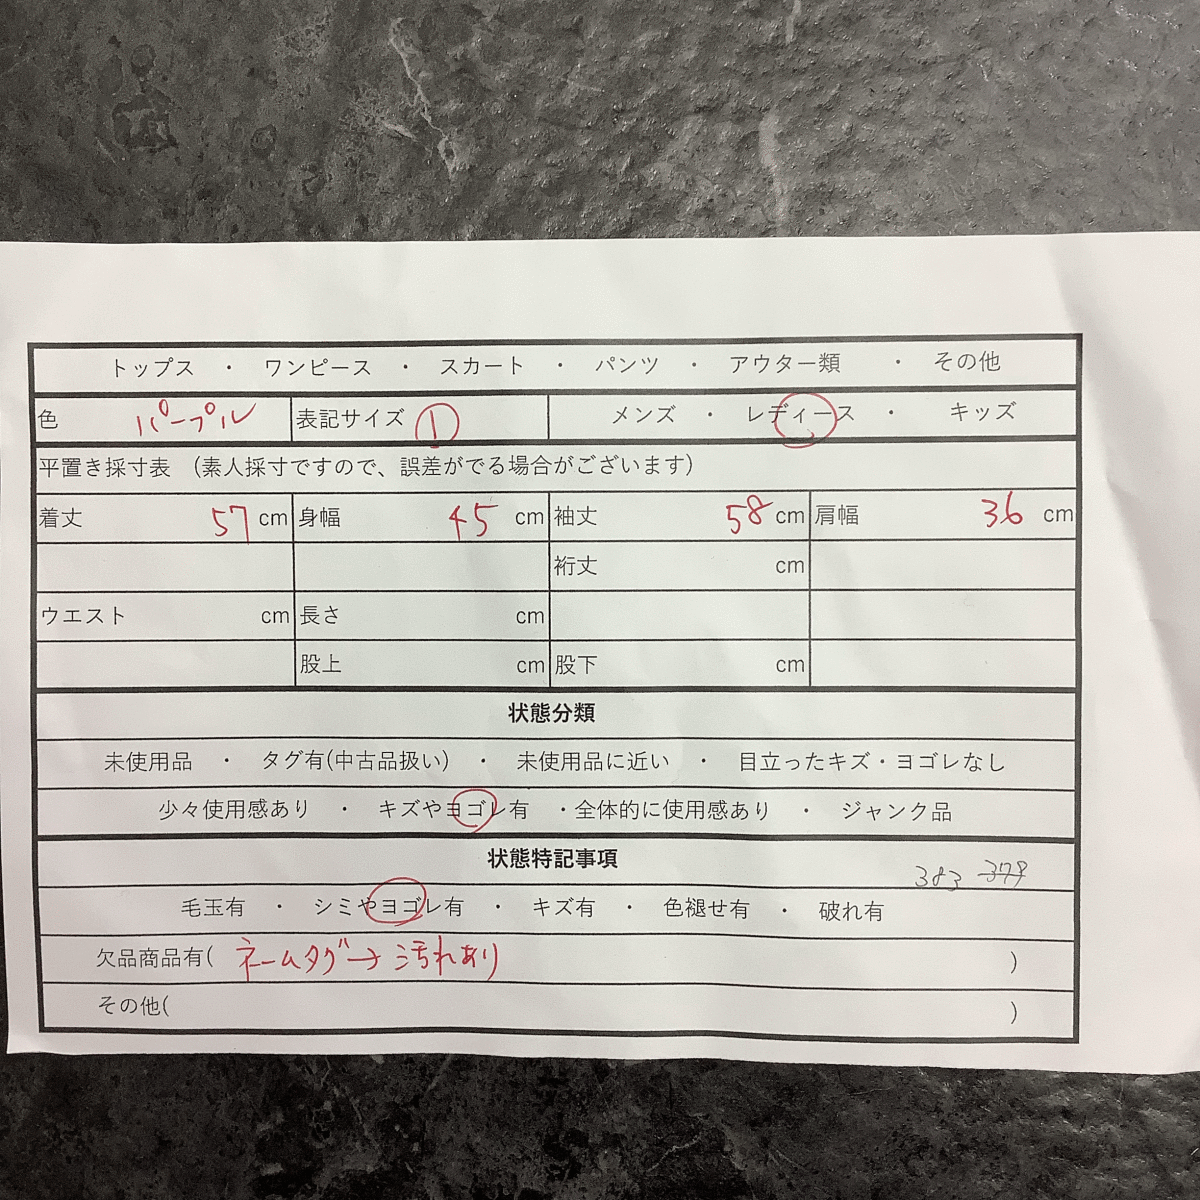 トップス ・ ワンピース ・ スカート ・ パンツ ・ アウター類 ・ その他
色 パープル 表記サイズ 1 メンズ ・ レディース ・ キッズ
平置き採寸表 (素人採寸ですので、誤差がでる場合がございます)
着丈 57 cm 身幅 45 cm 袖丈 58 cm 肩幅 36 cm
裄丈 cm
ウエスト cm 長さ cm
股上 cm 股下 cm
状態分類
未使用品 ・ タグ有(中古品扱い) ・ 未使用品に近い ・ 目立ったキズ・ヨゴレなし
少々使用感あり ・ キズやヨゴレ有 ・全体的に使用感あり ・ ジャンク品
状態特記事項
383 379
毛玉有 ・ シミやヨゴレ有 ・ キズ有 ・ 色褪せ有 ・ 破れ有
欠品商品有( ネームタグ→汚れあり )
その他( )